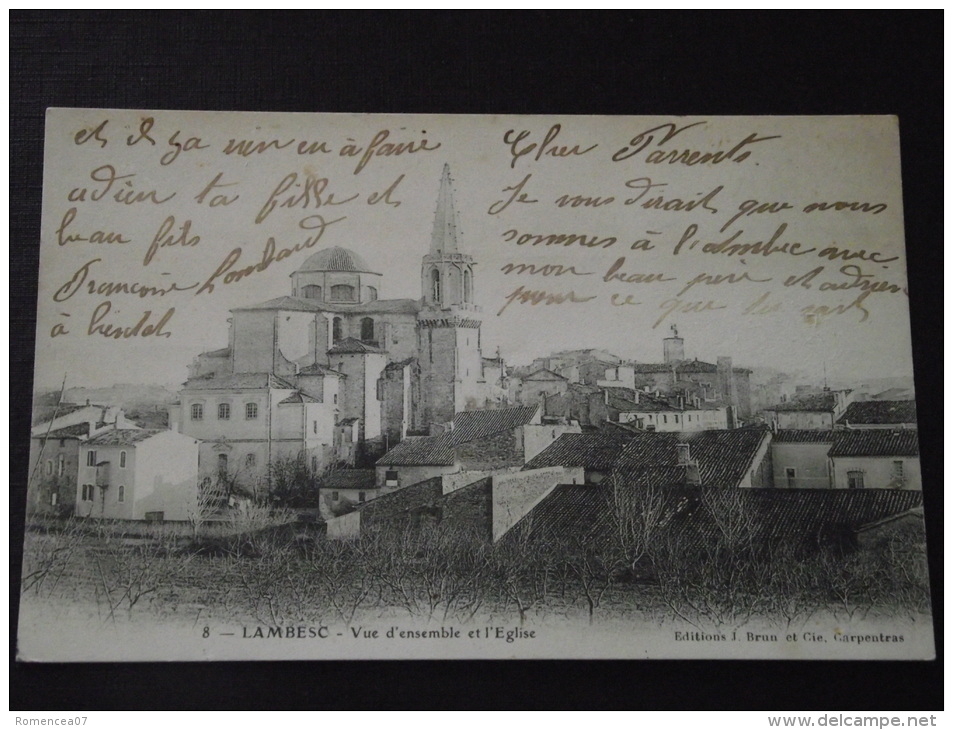 Cher Parrents.
Je vous dirait que nous
sommes à l'ambec avec
mon beau père et adrien
pour ce que sert
et il y a rien a faire
adieu ta fille et
beau fils
Françoise Lombard
à bientot
8 — LAMBESC - Vue d'ensemble et l'Eglise
Editions J. Brun et Cie, Carpentras
Romencea07
www.delcampe.net